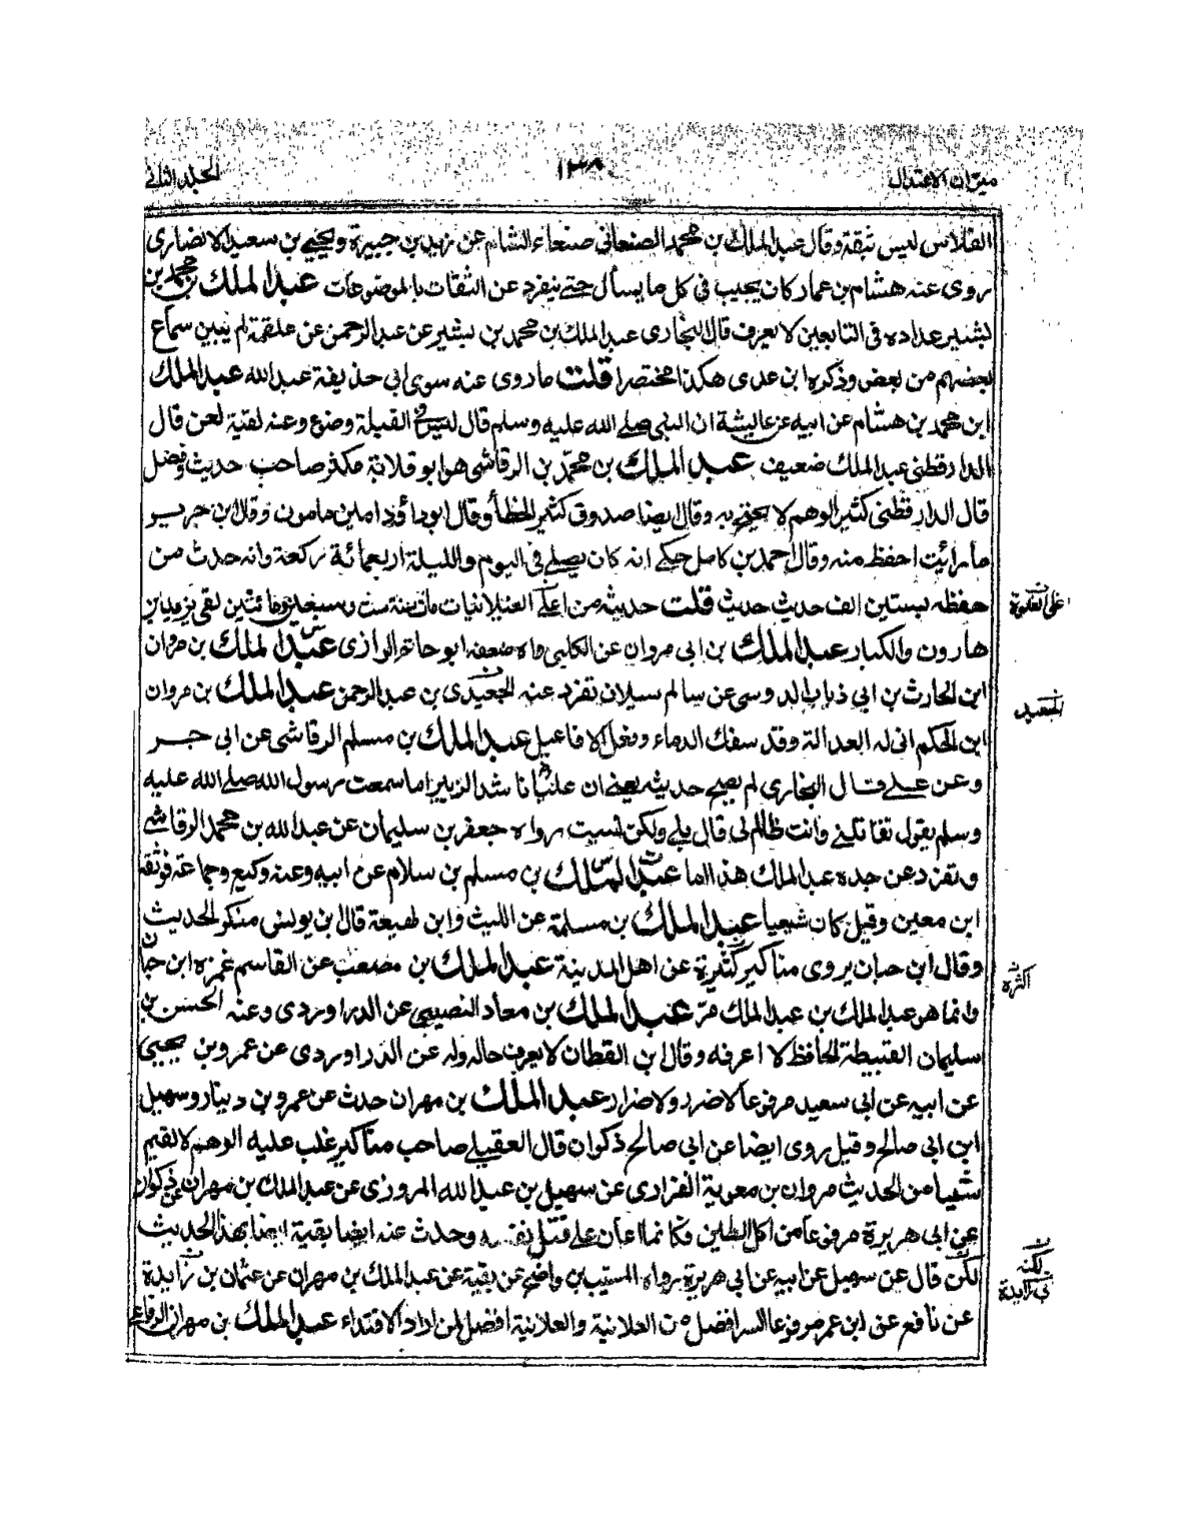 ميزان الاعتدال
١٣٨
الجلد الثاني
الفلاس ليس ثقة وقال عبد الملك بن محمد الصنعاني صنعاء الشام عن زيد بن جبيرة ويحيى بن سعيد الانصاري
روى عنه هشام بن عمار كان يجيب في كل ما يسأل حتى ينفرد عن الثقات بالموضوعات عبد الملك بن محمد بن
بشير عداده في التابعين لا يعرف قال البخاري عبد الملك بن محمد بن بشير عن عبد الرحمن عن علقمة لم يتبين سماع
بعضهم من بعض وذكره ابن عدي هكذا مختصرا قلت ما روى عنه سوى ابي حذيفة عبد الله عبد الملك
ابن محمد بن هشام عن ابيه عن عايشة ان النبي صلى الله عليه وسلم قال ليس في القبلة وضوء وعنه لقية لعن قال
الدارقطني عبد الملك ضعيف عبد الملك بن محمد بن الرقاشي هو ابو قلابة مكثر صاحب حديث وفضل
قال الدارقطني كثير الوهم لا يحتج به وقال ايضا صدوق كثير الخطأ وقال ابو داؤد امين مامون وقال ابن جرير
ما رائيت احفظ منه وقال احمد بن كامل حكي انه كان يصلي في اليوم والليلة اربعمائة ركعة وانه حدث من
حفظه بستين الف حديث قلت حديثه من اعلى الغيلانيات مات سنة ست وسبعين ومائتين لقي يزيد بن
هارون والكبار عبد الملك بن ابي مروان عن الكلبي واه ضعفه ابو حاتم الرازي عبد الملك بن مروان
ابن الحارث بن ابي ذباب الدوسي عن سالم سبلان تفرد عنه الجعيدي بن عبد الرحمن عبد الملك بن مروان
ابن الحكم انى له العدالة وقد سفك الدماء وفعل الافاعيل عبد الملك بن مسلم الرقاشي عن ابي جر
وعن علي قال البخاري لم يصح حديثه يعني ان عليا ناشد الزبير اما سمعت رسول الله صلى الله عليه
وسلم يقول تقاتلني وانت ظالم لي قال بلى ولكن نسيت رواه جعفر بن سليمان عن عبد الله بن محمد الرقاشي
وتفرد عن جده عبد الملك هذا اما عبد الملك بن مسلم بن سلام عن ابيه وعنه وكيع وجماعة فوثقه
ابن معين وقيل كان شعيا عبد الملك بن مسلمة عن الليث وابن لهيعة قال ابن يونس منكر الحديث
وقال ابن حبان يروى مناكير كثيرة عن اهل المدينة عبد الملك بن مصعب عن القاسم غمزه ابن حبان
وانما هو عبد الملك بن عبد الملك مر عبد الملك بن معاذ النصيبي عن الدراوردي وعنه الحسن بن
سليمان القبيطة الحافظ لا اعرفه وقال ابن القطان لا يعرف حاله وله عن الدراوردي عن عمرو بن يحيى
عن ابيه عن ابي سعيد مرفوعا لا ضرر ولا ضرار عبد الملك بن مهران حدث عن عمرو بن دينار وسهيل
ابن ابي صالح وقيل روى ايضا عن ابي صالح ذكوان قال العقيلي صاحب مناكير غلب عليه الوهم لا يقيم
شيا من الحديث مروان بن معوية الفزاري عن سهيل بن عبد الله المروزي عن عبد الملك بن مهران عن ذكوان
عن ابي هريرة مرفوعا من اكل الطين فكانما اعان على قتل نفسه وحدث عنه ايضا بقية ايضا بهذا الحديث
لكن قال عن سهيل عن ابيه عن ابي هريرة رواه المسيب بن واضح عن بقية عن عبد الملك بن مهران عن عثمان بن زايدة
عن نافع عن ابن عمر مرفوعا السر افضل من العلانية والعلانية افضل لمن اراد الاقتداء عبد الملك بن مهران الرفاعي
الجعيد
اكثره
لكنه
بي زايدة